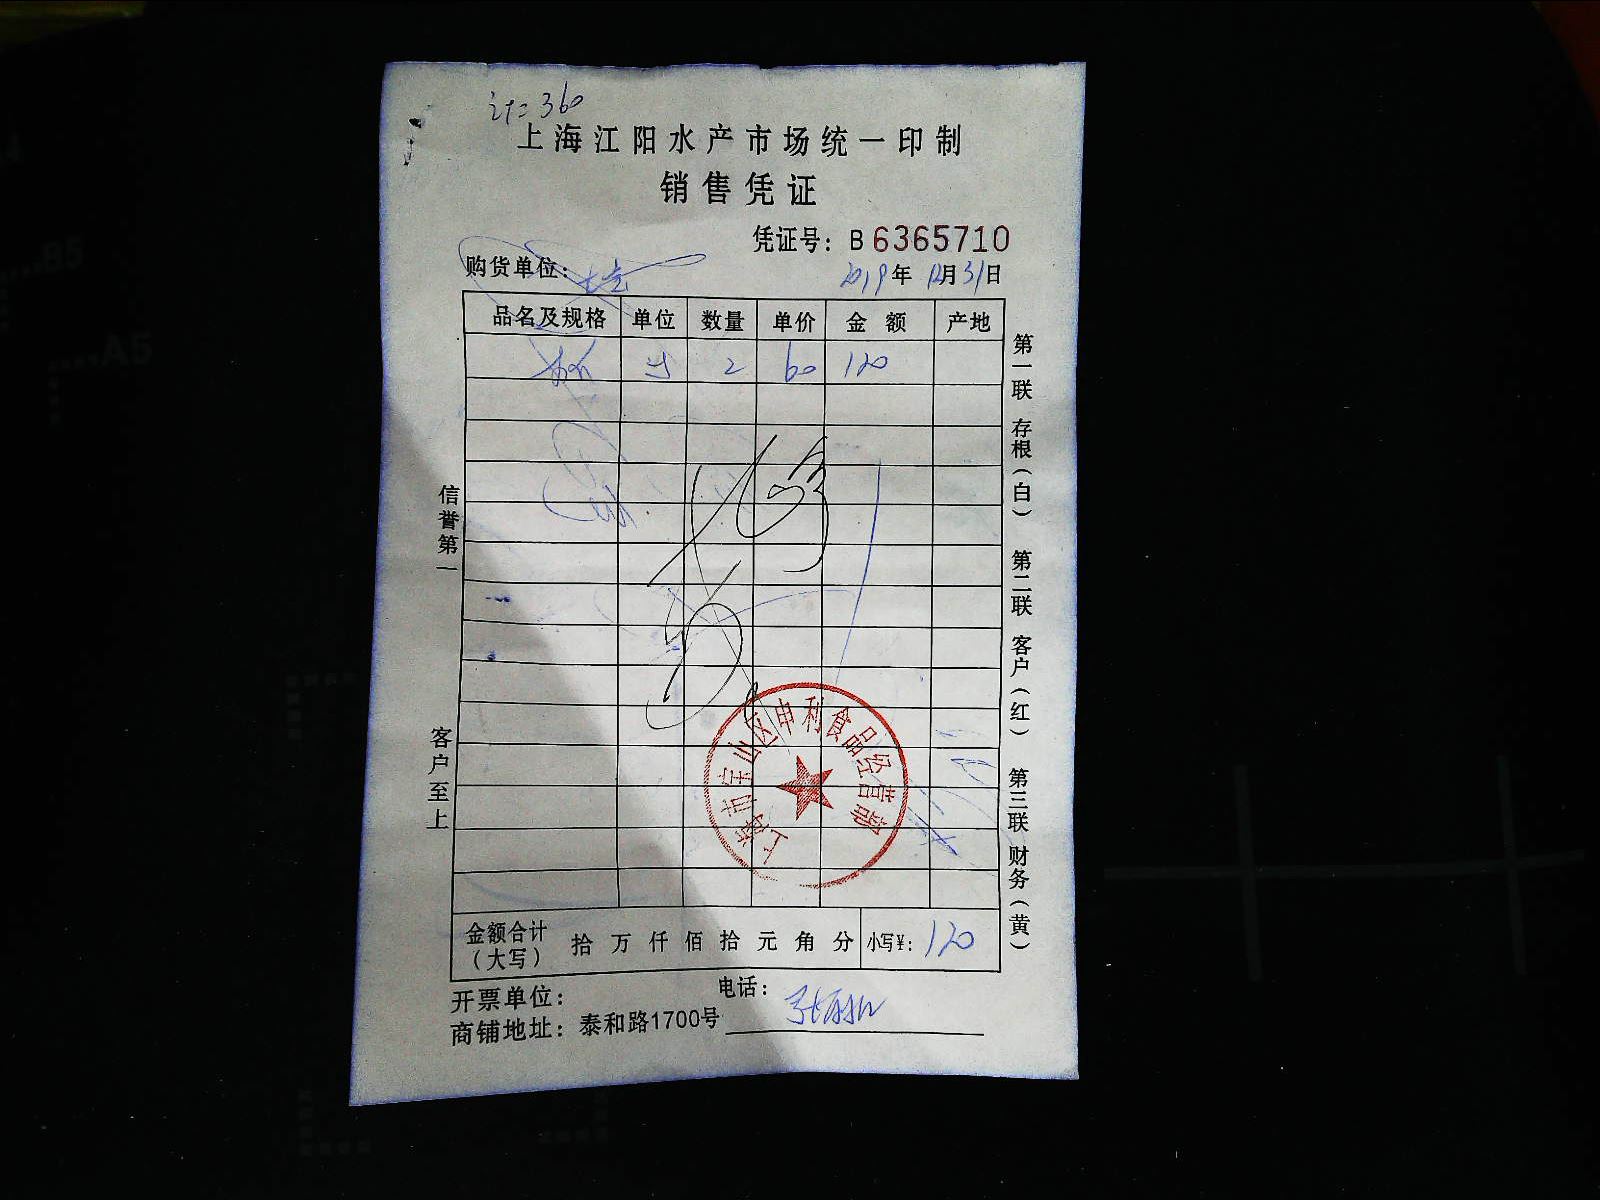 计=360
上海江阳水产市场统一印制
销售凭证
凭证号：B 6365710
购货单位：
2019年12月31日
品名及规格 单位 数量 单价 金额 产地
2 60 120
信誉第一
客户至上
第一联 存根（白） 第二联 客户（红） 第三联 财务（黄）
上海市宝山区申利食品经营部
金额合计（大写） 拾万仟佰拾元角分 小写¥：120
开票单位： 电话：
商铺地址：泰和路1700号